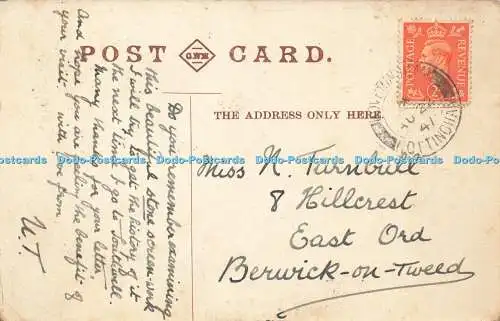 POST G.W.M CARD.
THE ADDRESS ONLY HERE.
Do you remember examining
this beautiful stone screen-work
I will try to get the history of it
the next time I go to Southwell.
Many thanks for your letter,
And hope you are feeling the benefit of
your visit, with love from
U.T.
Miss N. Turnbull
8 Hillcrest
East Ord
Berwick-on-Tweed
POSTAGE REVENUE
NOTTINGHAM
47
Dodo-Postcards Dodo-Postcards Dodo-Postcards Dodo-Postcards